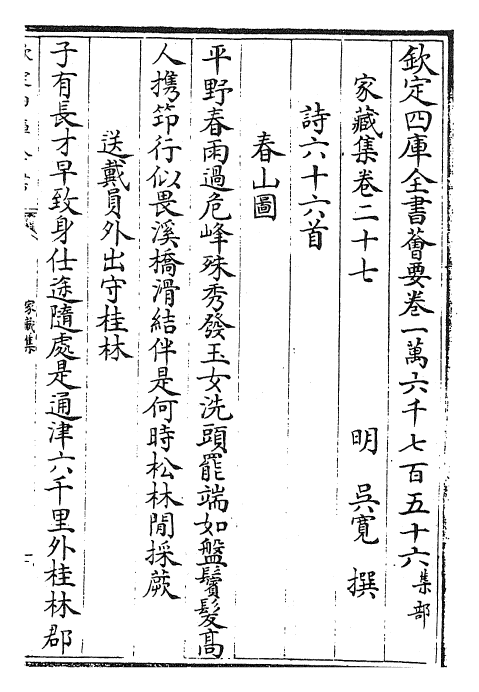 欽定四庫全書薈要卷一萬六千七百五十六集部
家藏集卷二十七 明 吳寬 撰
詩六十六首
春山圖
平野春雨過危峰殊秀發玉女洗頭罷端如盤鬢髮高
人携笻行似畏溪橋滑結伴是何時松林閒採蕨
送戴員外出守桂林
子有長才早致身仕途隨處是通津六千里外桂林郡
家藏集